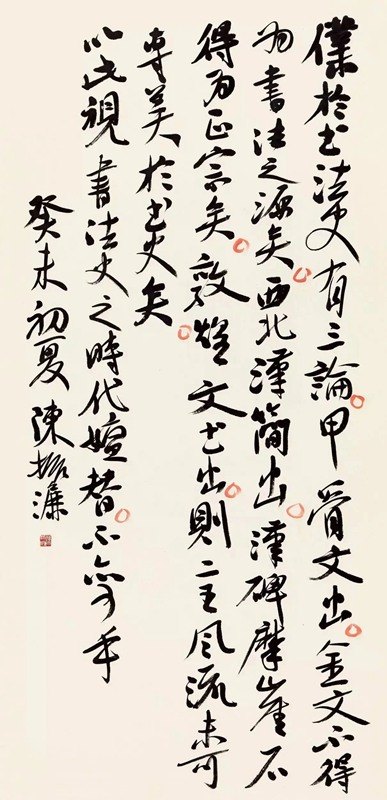 僕於書法史有三論。甲骨文出。金文不得
為書法之源矣。西北漢簡出。漢碑摩崖不
得為正宗矣。敦煌文書出。則二王風流未可
專美於書史矣。
以此視書法史之時代嬗替。不亦可乎
癸未初夏 陳振濂